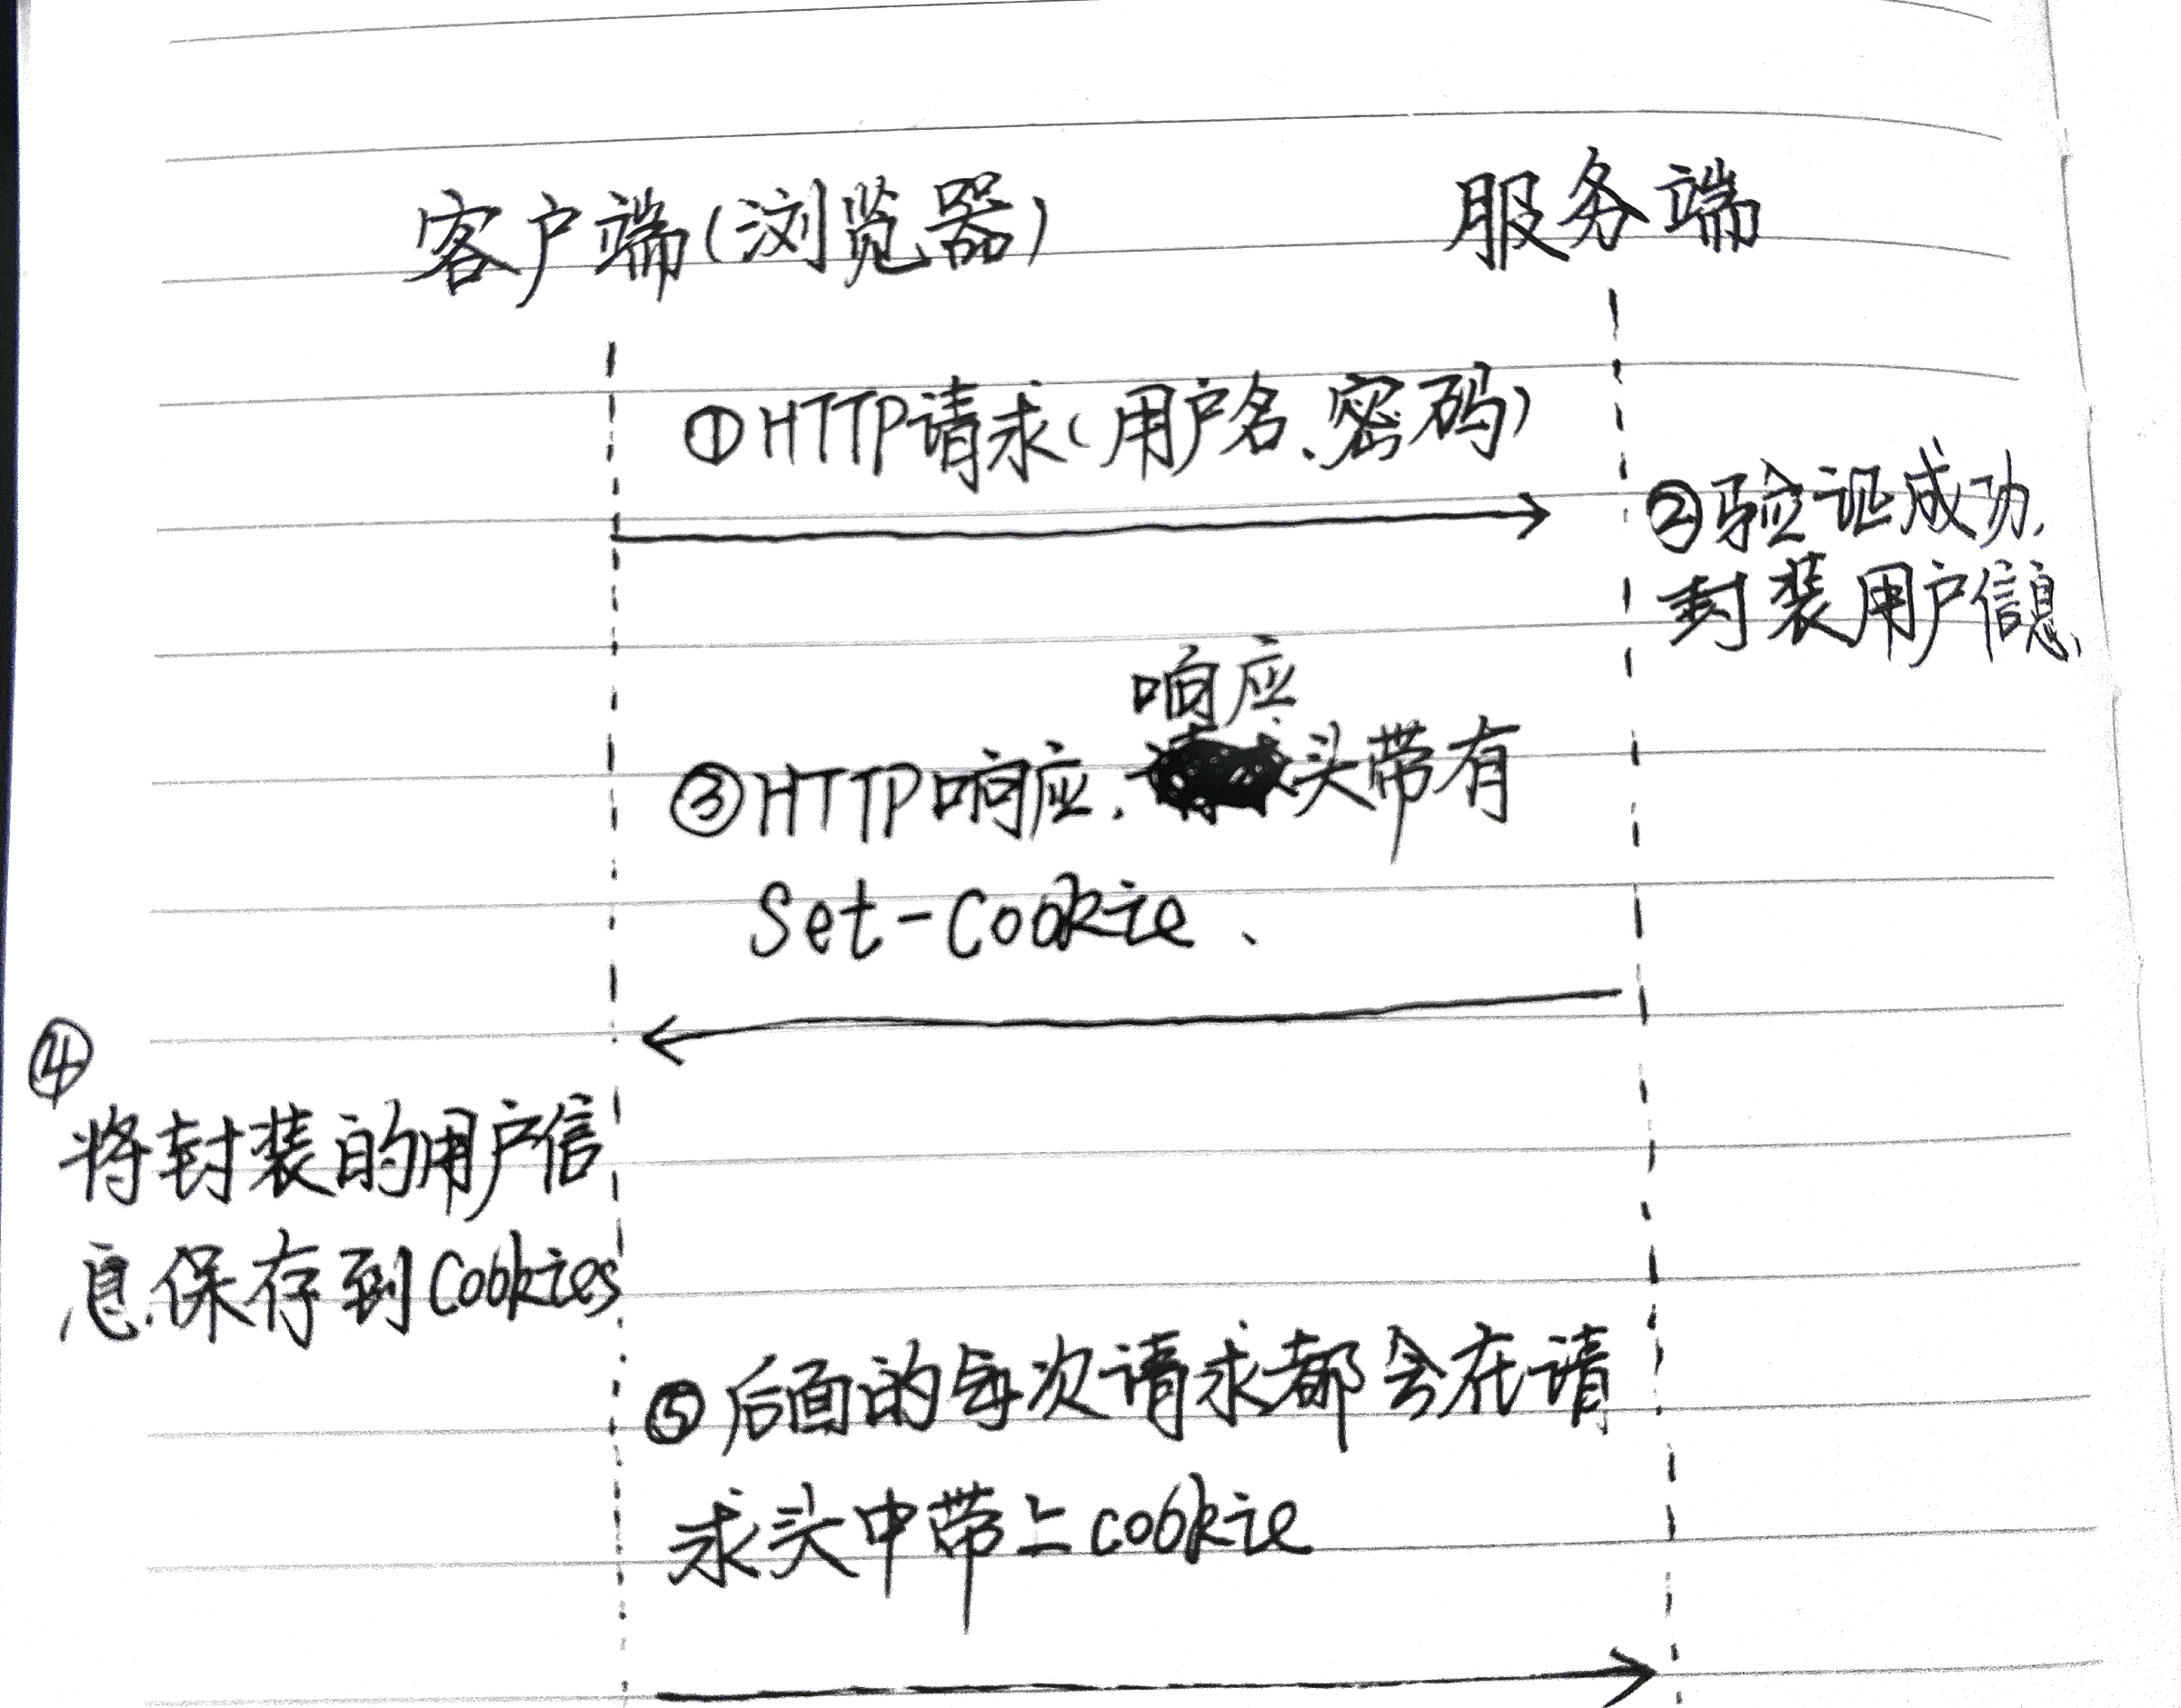 客户端(浏览器)
服务端
①HTTP请求(用户名、密码)
②验证成功,
封装用户信息、
响应
③HTTP响应、头带有
Set-Cookie、
④
将封装的用户信
息保存到Cookies
⑤后面的每次请求都会在请
求头中带上cookie